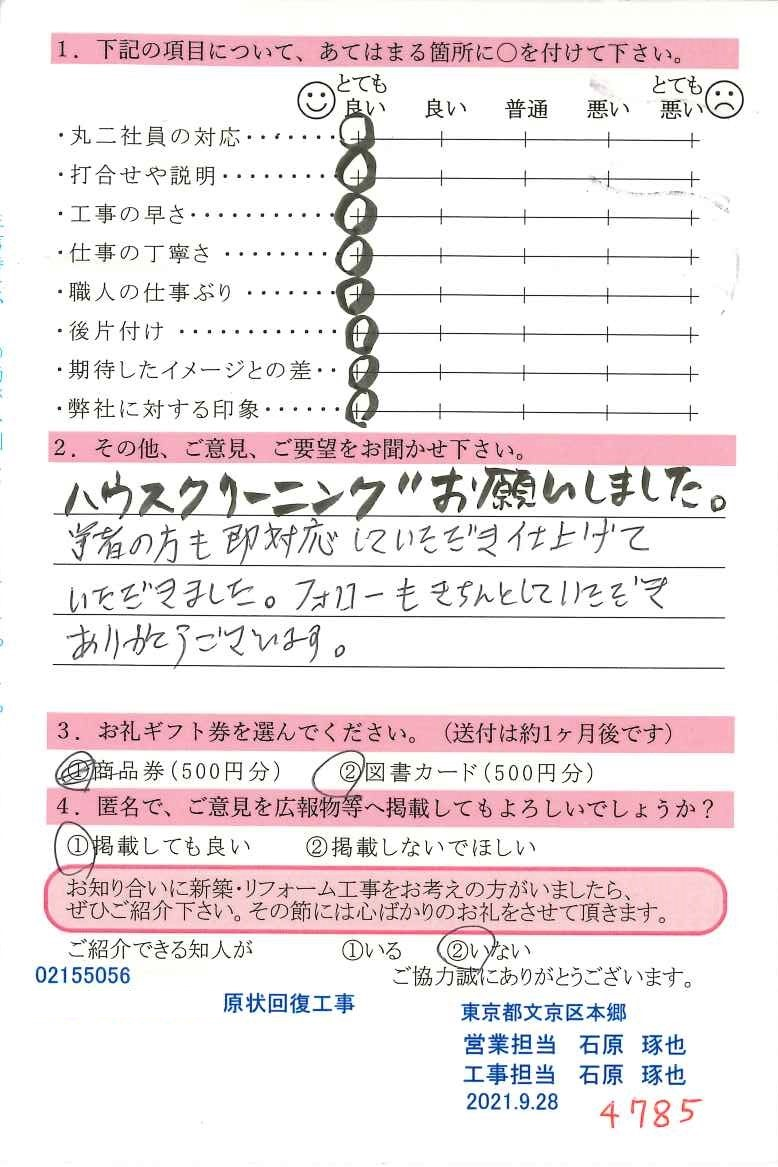 1. 下記の項目について、あてはまる箇所に○を付けて下さい。
とても良い 良い 普通 悪い とても悪い
・丸二社員の対応・・・・・・・
・打合せや説明・・・・・・・・
・工事の早さ・・・・・・・・・・・
・仕事の丁寧さ ・・・・・・・・
・職人の仕事ぶり ・・・・・・・
・後片付け ・・・・・・・・・・・・
・期待したイメージとの差・・
・弊社に対する印象・・・・・・
2. その他、ご意見、ご要望をお聞かせ下さい。
ハウスクリーニングお願いしました。
業者の方も即対応していただき仕上げて
いただきました。フォローもきちんとしていただき
ありがとうございます。
3. お礼ギフト券を選んでください。(送付は約1ヶ月後です)
①商品券(500円分) ②図書カード(500円分)
4. 匿名で、ご意見を広報物等へ掲載してもよろしいでしょうか?
①掲載しても良い ②掲載しないでほしい
お知り合いに新築・リフォーム工事をお考えの方がいましたら、
ぜひご紹介下さい。その節には心ばかりのお礼をさせて頂きます。
ご紹介できる知人が ①いる ②いない
02155056 ご協力誠にありがとうございます。
原状回復工事 東京都文京区本郷
営業担当 石原 琢也
工事担当 石原 琢也
2021.9.28 4785